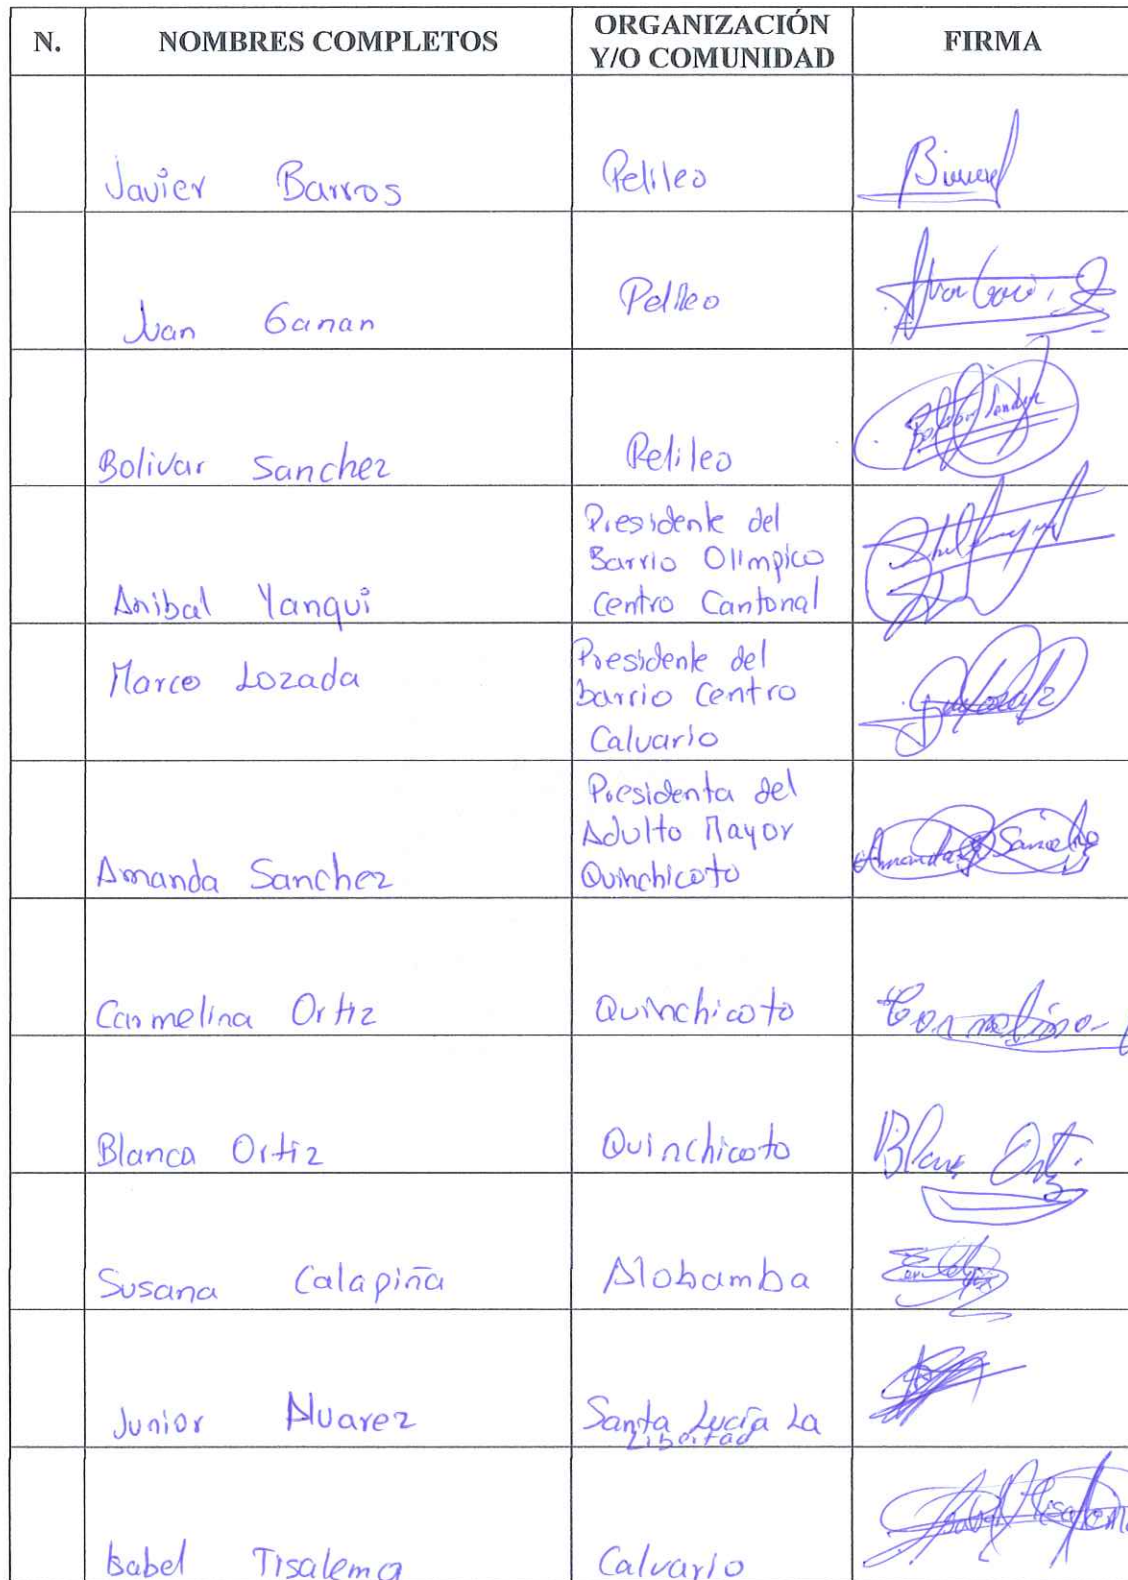 N. NOMBRES COMPLETOS ORGANIZACIÓN Y/O COMUNIDAD FIRMA
Javier Barros Pelileo
Juan Ganan Pelileo
Bolivar Sanchez Pelileo Bolivar Sanchez
Anibal Yanqui Presidente del
Barrio Olimpico
Centro Cantonal
Marco Lozada Presidente del
barrio Centro
Calvario
Amanda Sanchez Presidenta del
Adulto Mayor
Quinchicoto Amanda Sanchez
Carmelina Ortiz Quinchicoto Carmelina
Blanca Ortiz Quinchicoto Blanc Orti
Susana Calapiña Alobamba
Junior Alvarez Santa Lucía La
Libertad
Isabel Tisalema Calvario Isabel Tisalema